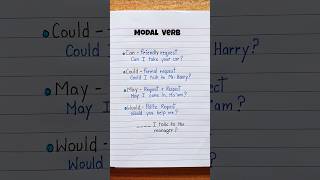 MODAL VERB
Can - Friendly request
Can I take your car?
Could - Formal request
Could I talk to Mr. Harry?
May - Request + Respect
May I come in, Ma'am?
Would - Polite Request
Would you help me?
____ I talk to the
manager?